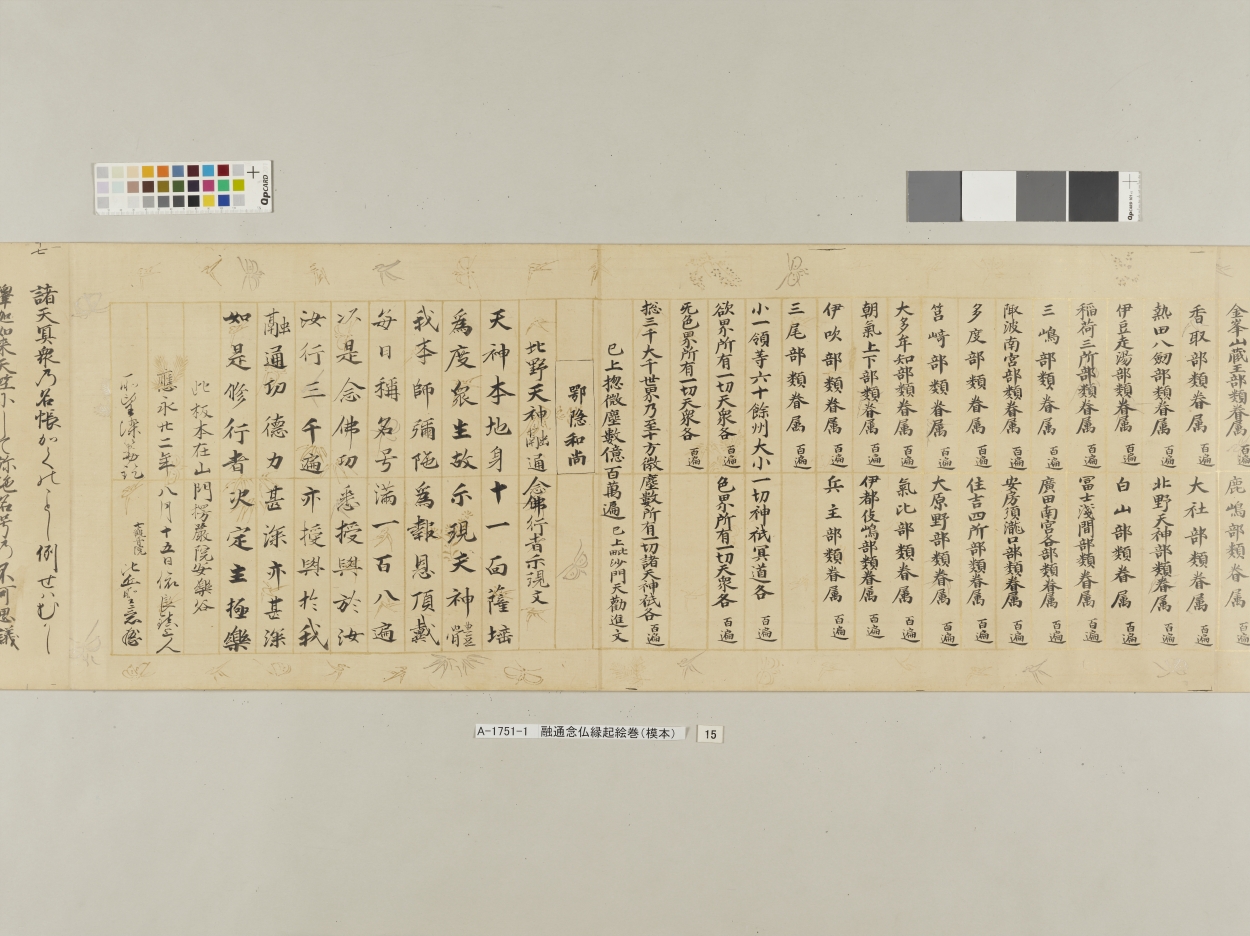 金峯山蔵王部類眷属
鹿嶋部類眷属 百遍
香取部類眷属 百遍
大社部類眷属 百遍
熱田八劔部類眷属 百遍
北野天神部類眷属 百遍
伊豆走湯部類眷属 百遍
白山部類眷属 百遍
稲荷三所部類眷属 百遍
冨士淺間部類眷属 百遍
三嶋部類眷属 百遍
廣田南宮各部類眷属 百遍
陬波南宮部類眷属 百遍
安房須瀧口部類眷属 百遍
多度部類眷属 百遍
住吉四所部類眷属 百遍
筥崎部類眷属 百遍
大原野部類眷属 百遍
大多年知部類眷属 百遍
氣比部類眷属 百遍
朝氣上下部類眷属 百遍
伊都伎嶋部類眷属 百遍
伊吹部類眷属 百遍
兵主部類眷属 百遍
三尾部類眷属 百遍
小一領等六十餘州大小一切神祇冥道各 百遍
欲界所有一切天衆各 百遍
色界所有一切天衆各 百遍
无色界所有一切天衆各 百遍
惣三千大千世界乃至十方微塵数所有一切諸天神祇各 百遍
已上惣微塵数億百萬遍 已上毗沙門天勸進文
鄂隠和尚
北野天神融通念佛行者示現文
天神本地身十一面薩埵
為度衆生故示現天神體
我本師彌陁為報恩頂戴
毎日稱名号滿一百八遍
以是念佛功悉授與於汝
汝行三千遍亦授與於我
融通功德力甚深亦甚深
如是修行者決定生極樂
此板木在山門楞嚴院安樂谷
應永廿二年八月十五日依良鎮上人
所望染筆訖
諸天冥衆乃名帳かくのことし例せハむかし
釋迦如来天竺にして弥陁名号乃不可思議
七
A-1751-1 融通念仏縁起絵巻(模本) 15
QPCARD
QPCARD